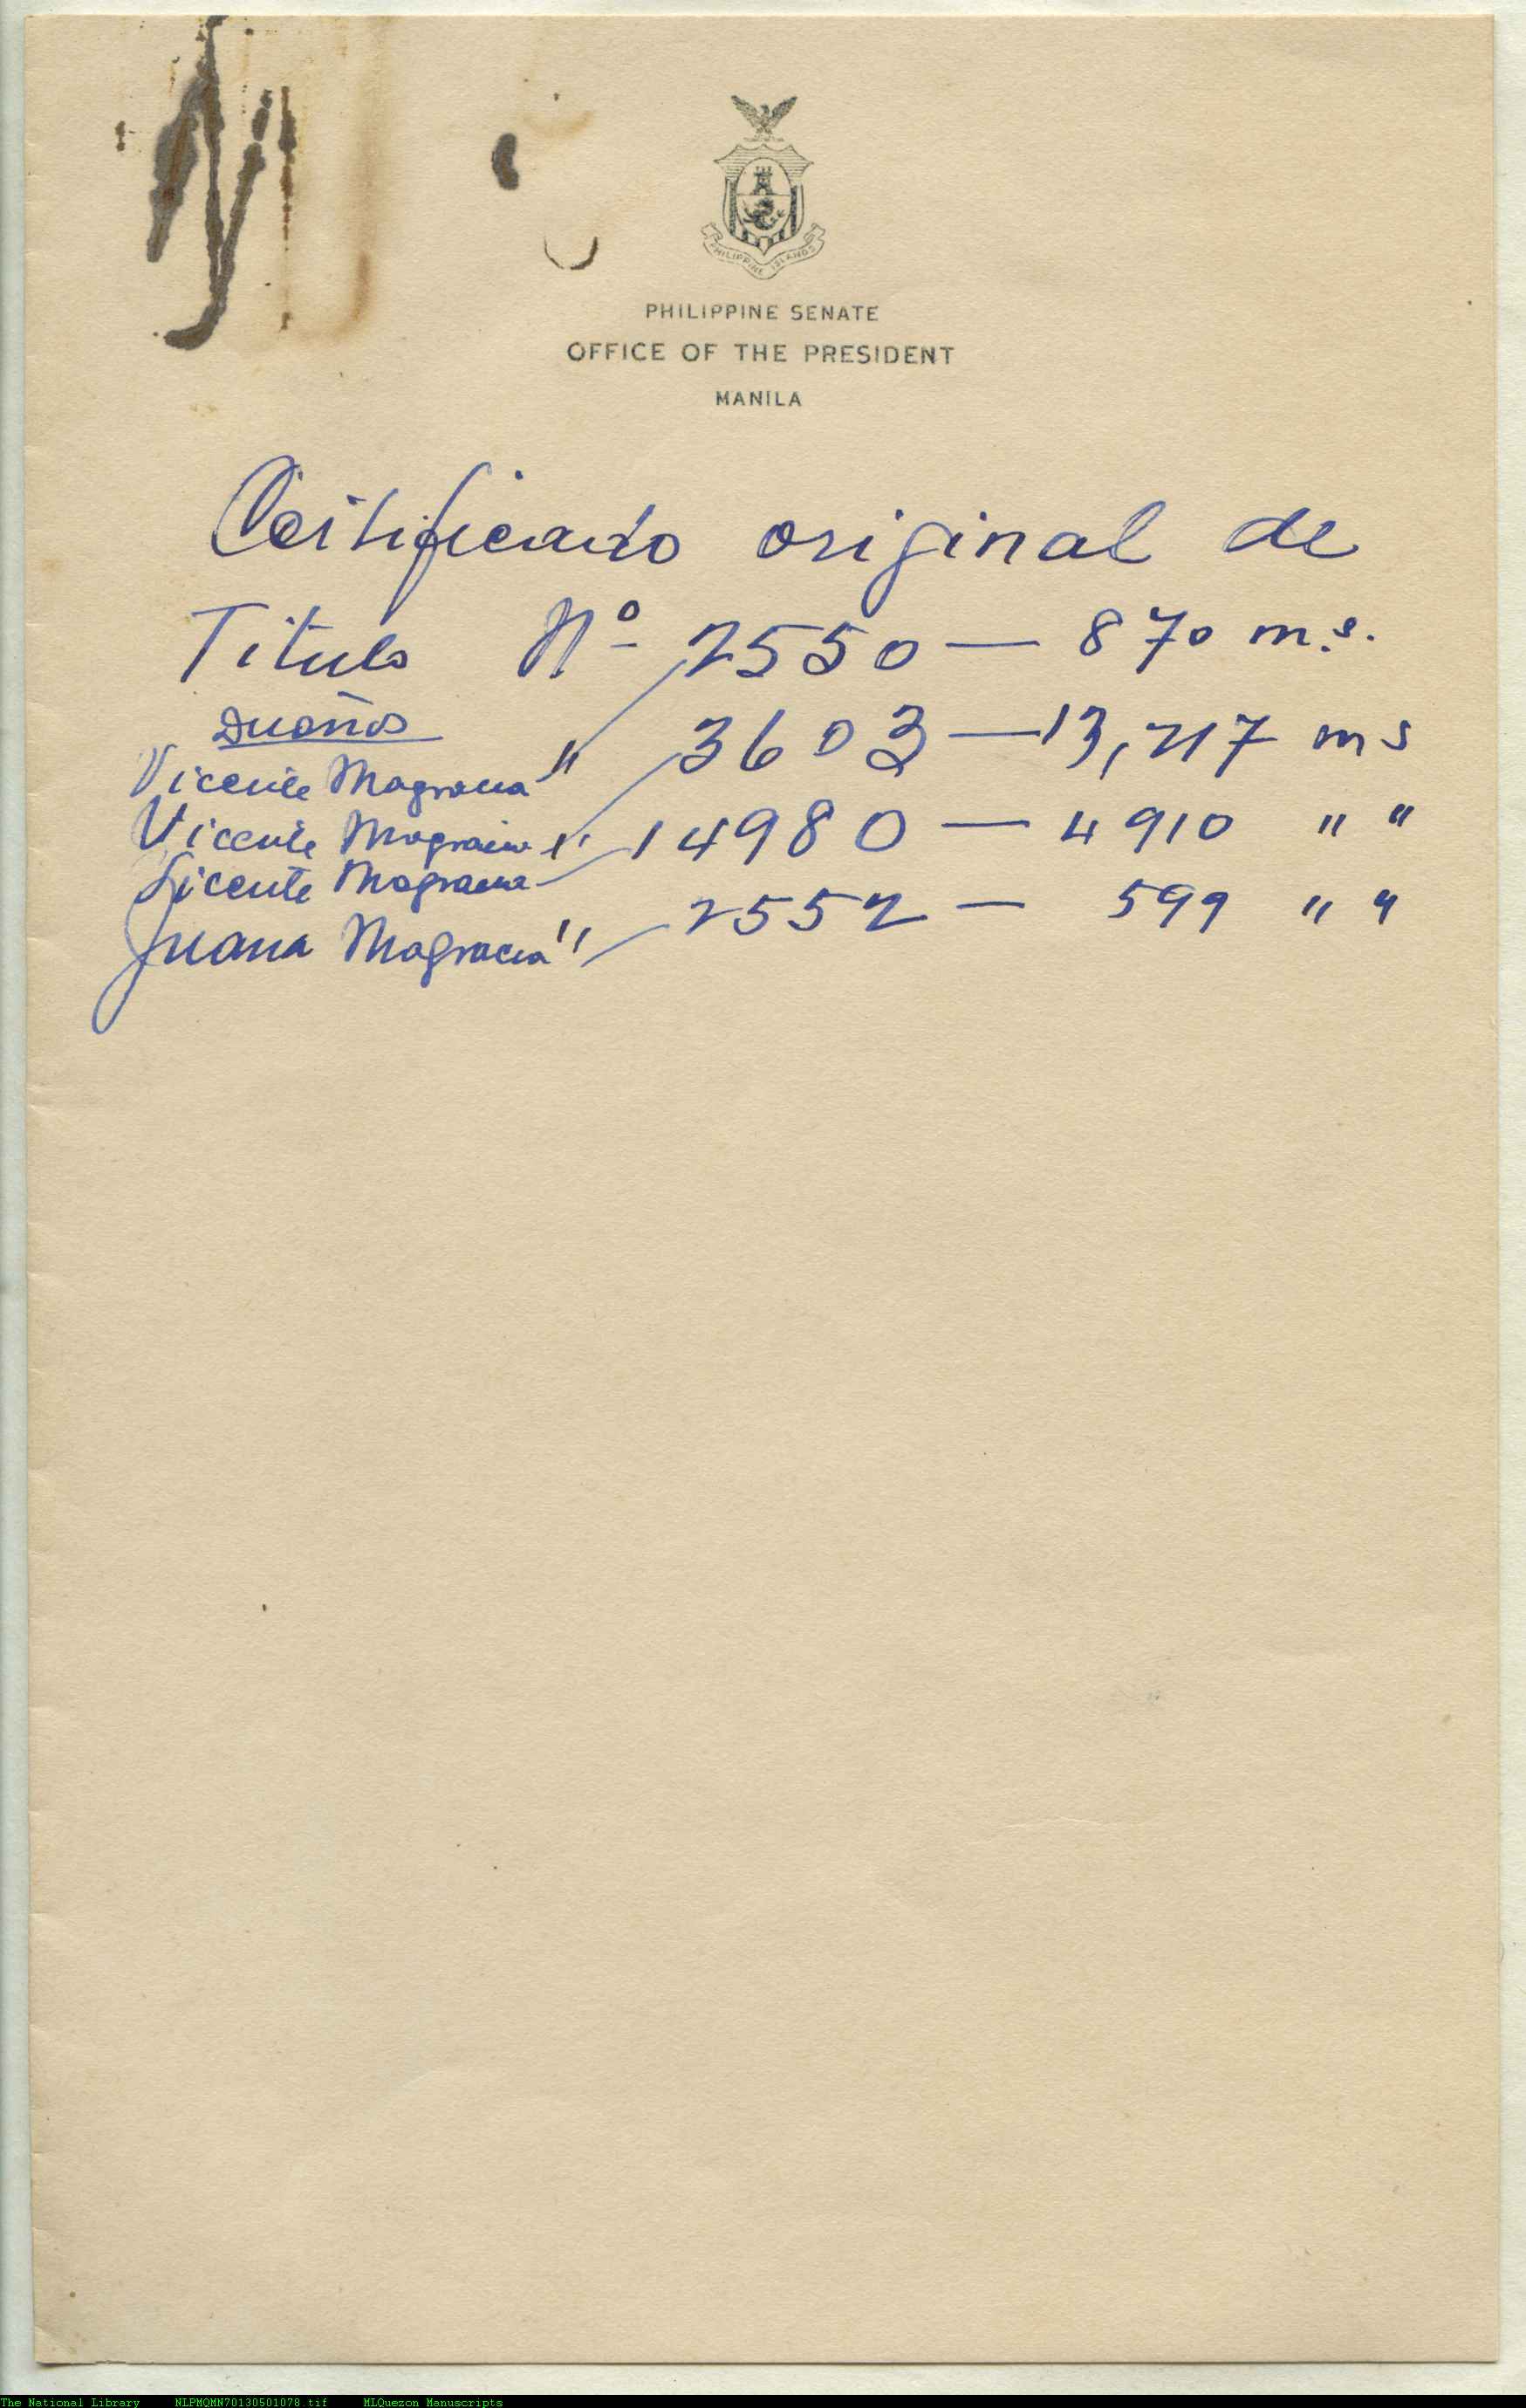 PHILIPPINE ISLANDS
PHILIPPINE SENATE
OFFICE OF THE PRESIDENT
MANILA
Certificado original de
Titulo Nº 2550 — 870 m.s.
Dueños
Vicente Magracia " 3603 — 13,217 ms
Vicente Magracia " 14980 — 4910 " "
Vicente Magracia
Juana Magracia " 2552 — 599 " "
The National Library NLPMQMN70130501078.tif MLQuezon Manuscripts